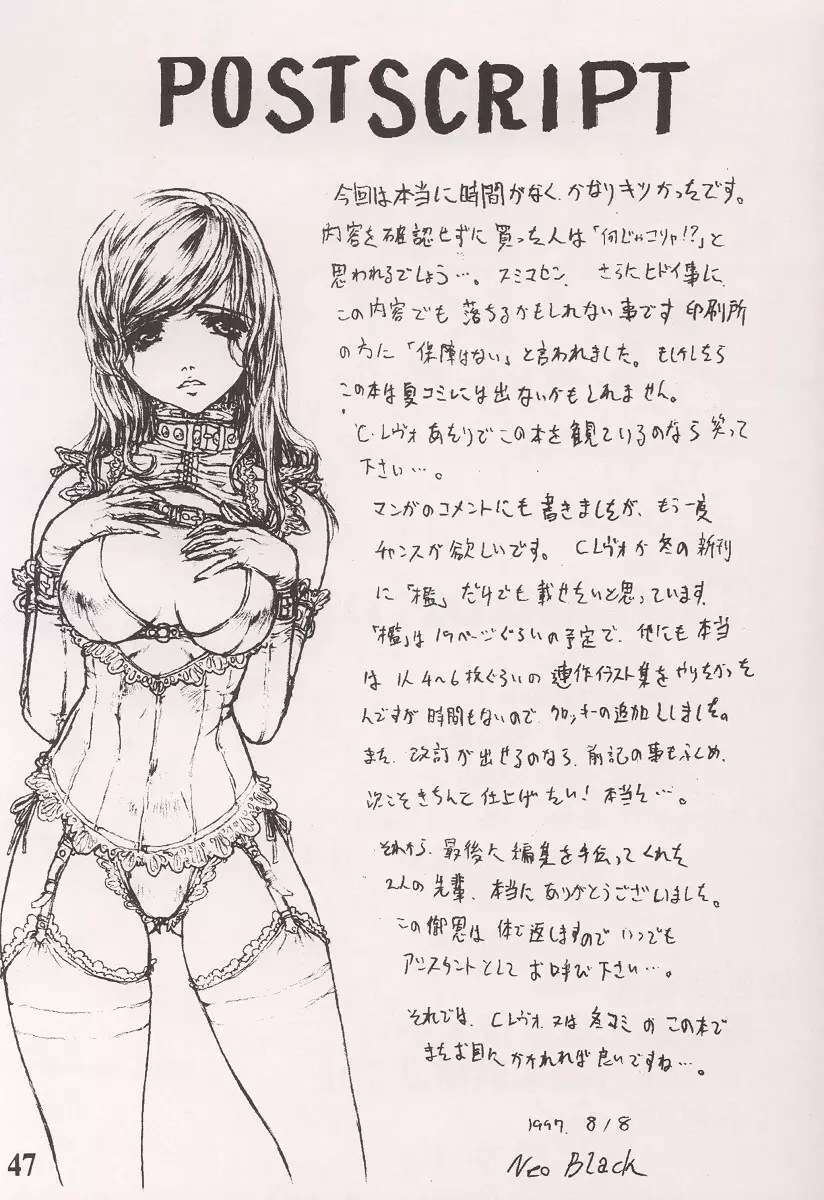 POSTSCRIPT
今回は本当に時間がなく、かなりキツかったです。
内容を確認せずに買った人は「何じゃコリャ!?」と
思われるでしょう…。スミマセン、さらにヒドイ事に、
この内容でも落ちるかもしれない事です 印刷所
の方に「保障はない」と言われました。もしかしたら
この本は夏コミには出ないかもしれません。
C.レヴォあたりでこの本を観ているのなら笑って
下さい…。
マンガのコメントにも書きましたが、もう一度
チャンスが欲しいです。Cレヴォか冬の新刊
に「檻」だけでも載せたいと思っています。
「檻」は19ページぐらいの予定で、他にも本当
は1人4〜6枚ぐらいの連作イラスト集をやりたかった
んですが時間もないので、クロッキーの追加にしました。
また、改訂が出せるのなら、前記の事もふくめ、
次こそきちんと仕上げたい!本当に…。
それから、最後に編集を手伝ってくれた
2人の先輩、本当にありがとうございました。
この御恩は体で返しますので いつでも
アシスタントとして お呼び下さい…。
それでは、Cレヴォ、又は冬コミの この本で
またお目にかかれれば良いですね…。
1997. 8/8
Neo Black
47